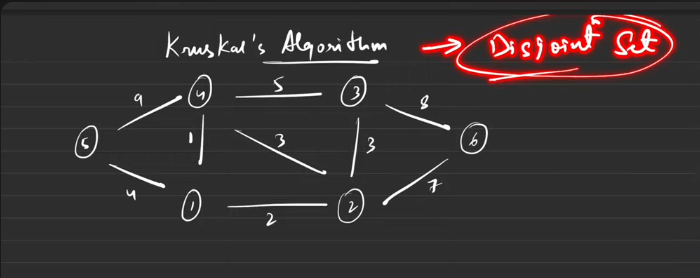 Kruskal's Algorithm → Disjoint Set
4 5 3
9 8
5 1 3 3 6
4 7
1 2 2